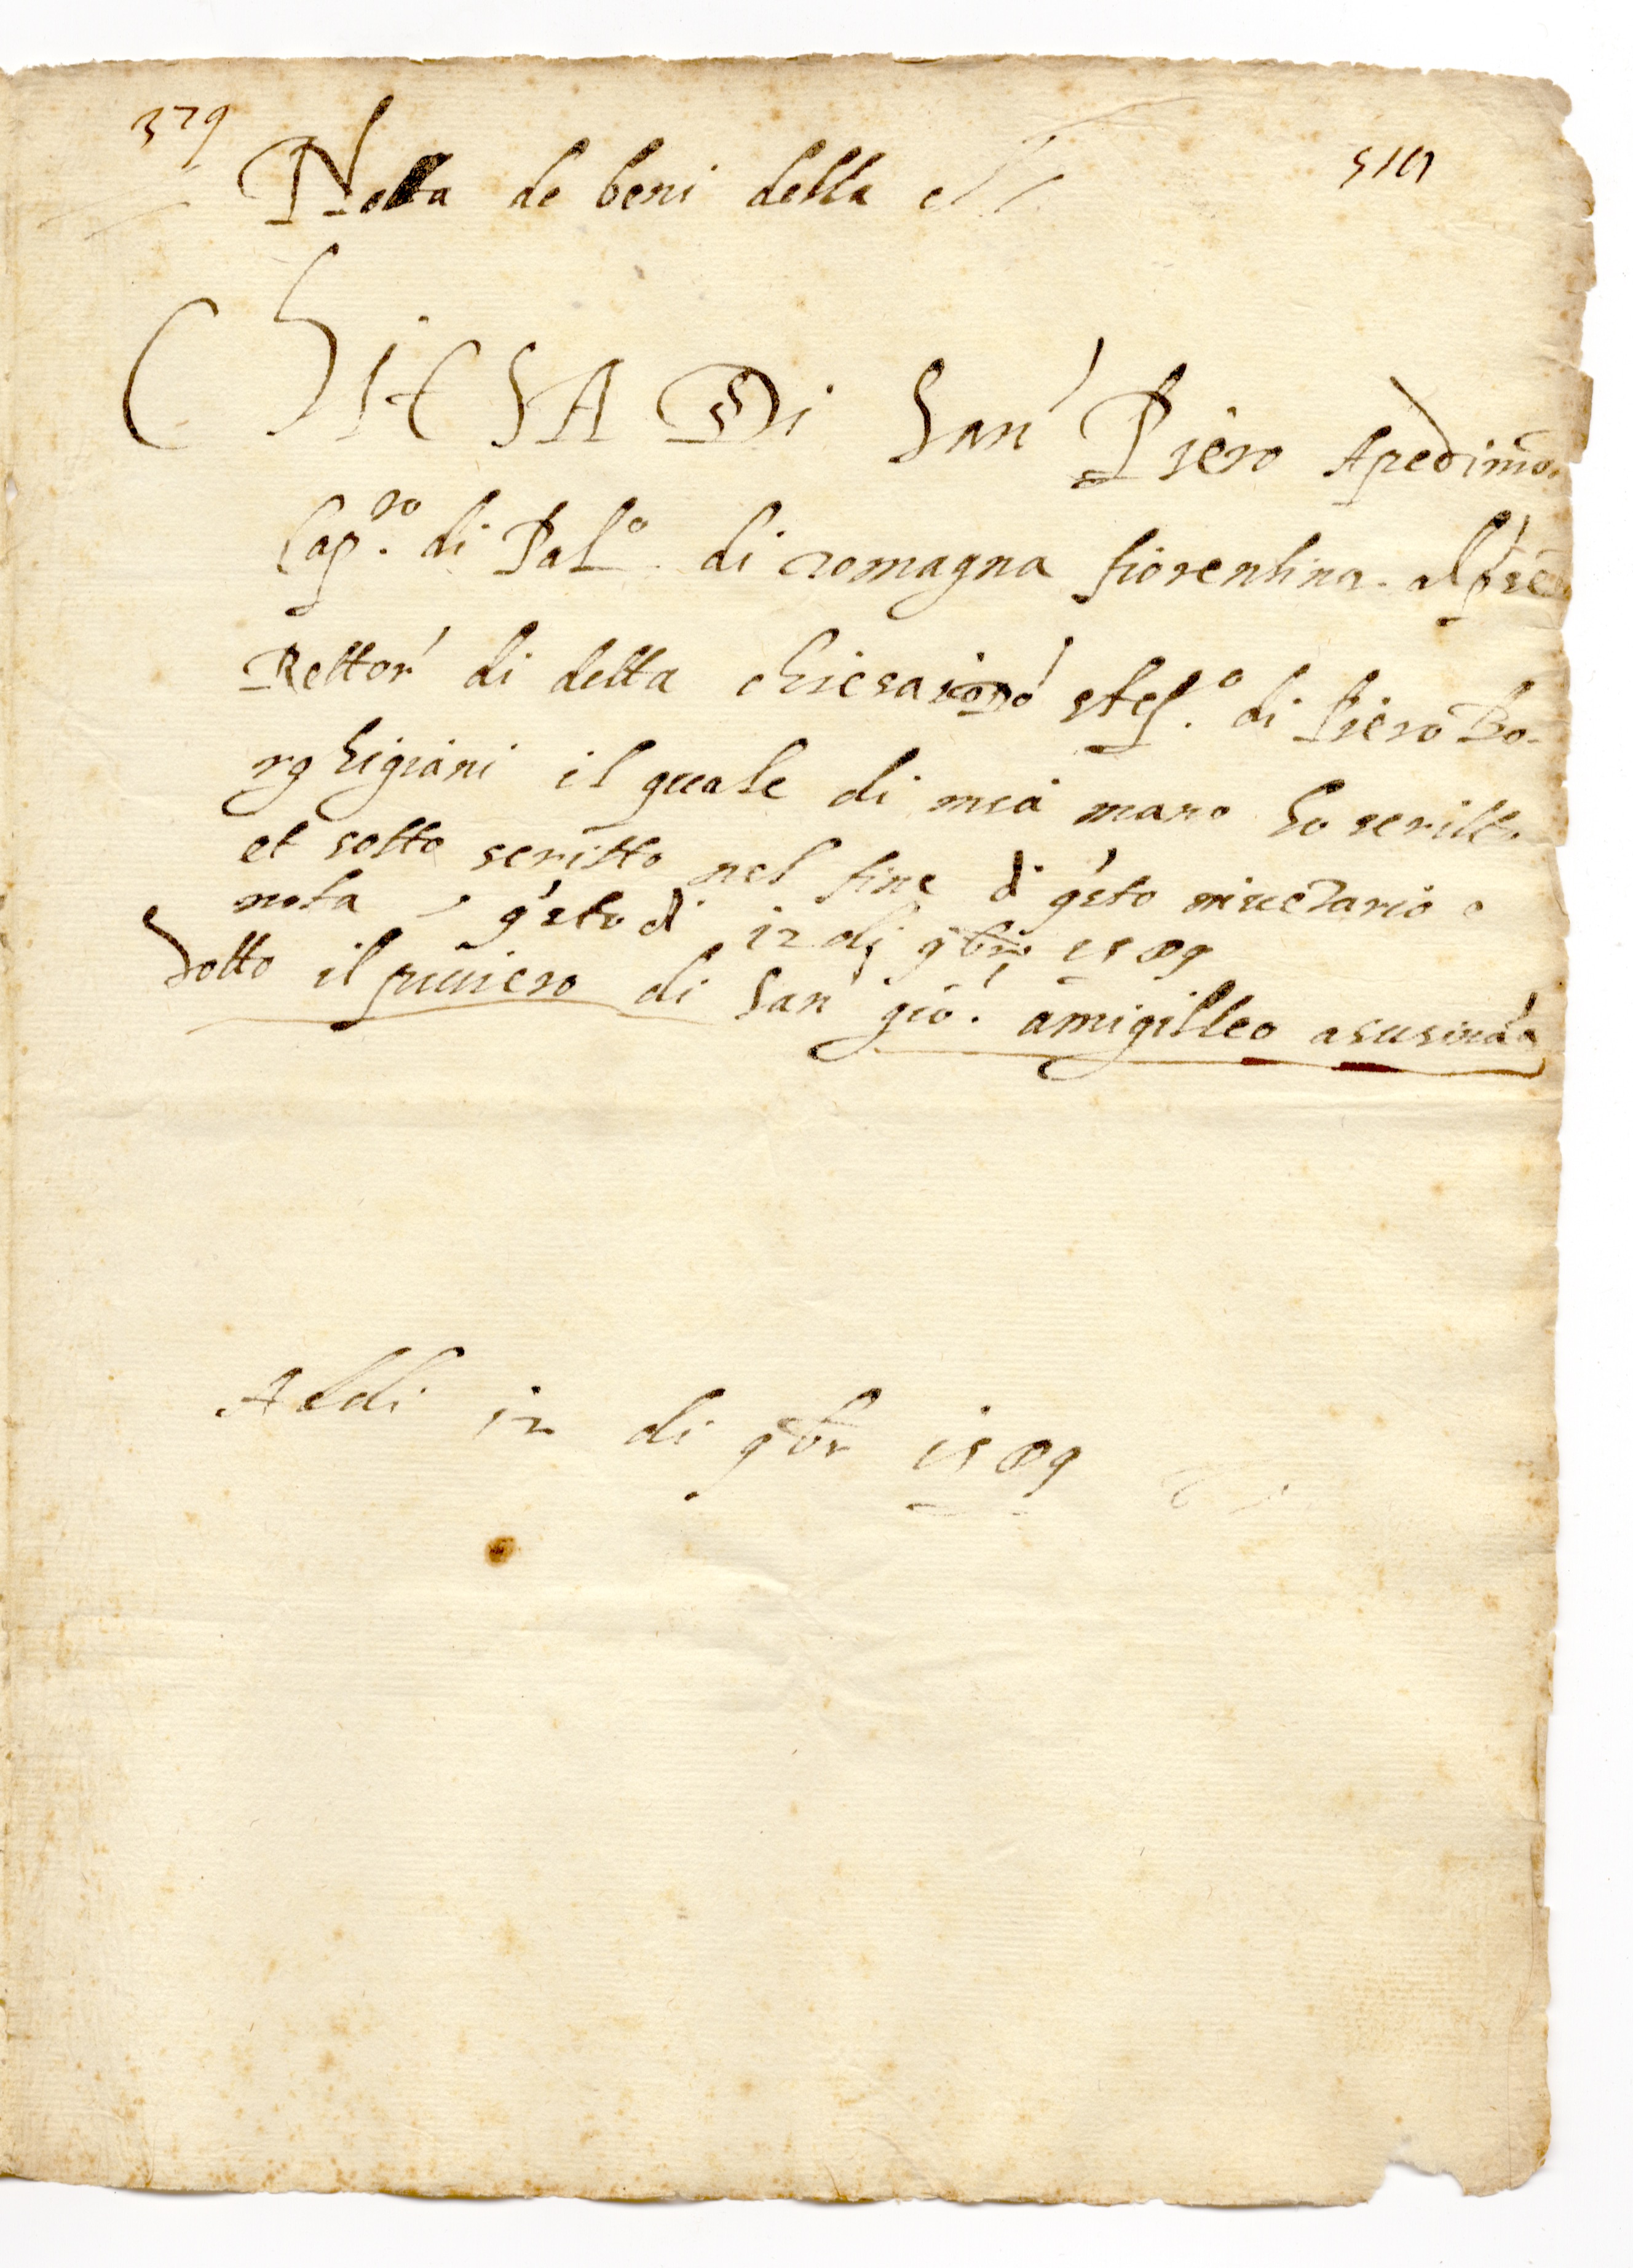 379
Nota de beni della
CHIESA Di San Piero Apedimo.
Cap.ro di Pal.o di romagna fiorentina. al pre
Rettor' di detta chiesa stef.o di Piero Bo-
rghigiani il quale di mia mano ho scritto
et sotto scritto nel fine di q'sto e
nota q'sto di 12 di 9bre 1589
Sotto il piviero di San gio. amigilleo
Addi 12 di 9br 1589